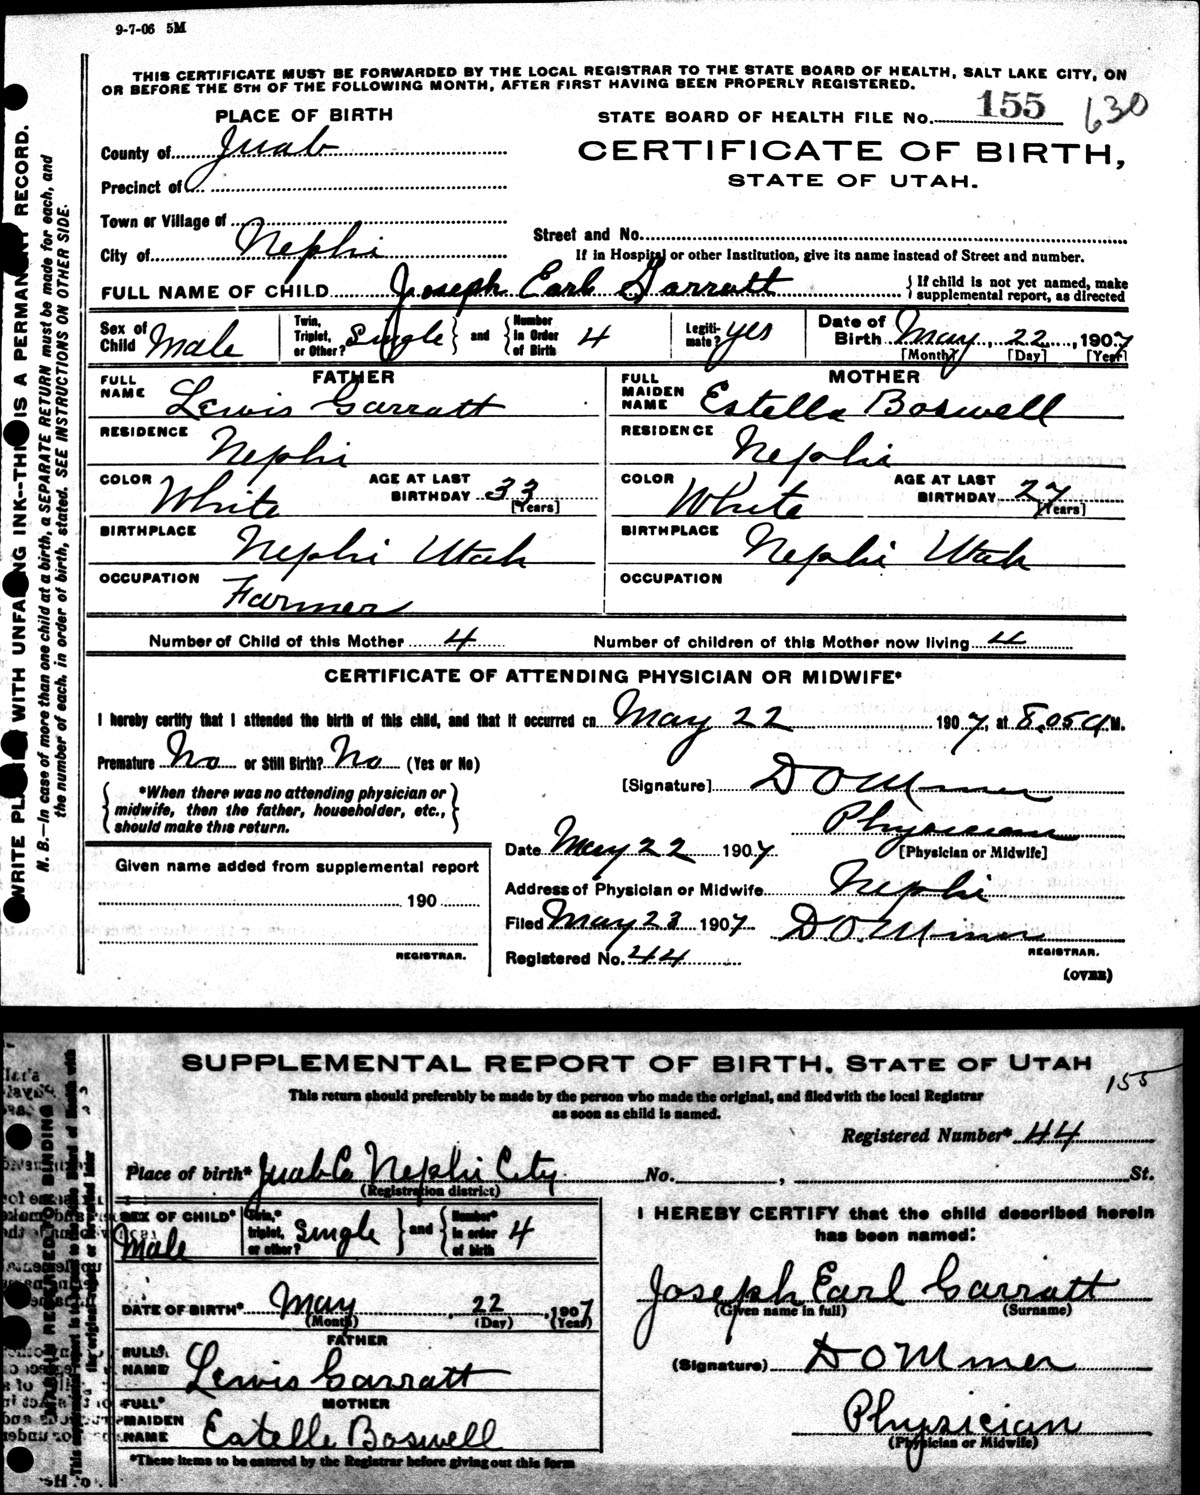 9-7-06 5M
THIS CERTIFICATE MUST BE FORWARDED BY THE LOCAL REGISTRAR TO THE STATE BOARD OF HEALTH, SALT LAKE CITY, ON
OR BEFORE THE 5TH OF THE FOLLOWING MONTH, AFTER FIRST HAVING BEEN PROPERLY REGISTERED.
PLACE OF BIRTH
STATE BOARD OF HEALTH FILE No. 155 630
County of Juab
CERTIFICATE OF BIRTH,
STATE OF UTAH.
Precinct of
Town or Village of
City of Nephi
Street and No.
If in Hospital or other Institution, give its name instead of Street and number.
FULL NAME OF CHILD Joseph Earl Garratt { If child is not yet named, make supplemental report, as directed
Sex of Child Male Twin, Triplet, or Other? Single } and { Number in Order of Birth 4 Legitimate? yes Date of Birth May, 22, 1907
[Month] [Day] [Year]
FATHER
FULL NAME Lewis Garratt
RESIDENCE Nephi
COLOR White AGE AT LAST BIRTHDAY 33 [Years]
BIRTHPLACE Nephi Utah
OCCUPATION Farmer
MOTHER
FULL MAIDEN NAME Estella Boswell
RESIDENCE Nephi
COLOR White AGE AT LAST BIRTHDAY 27 [Years]
BIRTHPLACE Nephi Utah
OCCUPATION
Number of Child of this Mother 4 Number of children of this Mother now living 4
CERTIFICATE OF ATTENDING PHYSICIAN OR MIDWIFE*
I hereby certify that I attended the birth of this child, and that it occurred on May 22 1907, at 8.05 a M.
Premature No or Still Birth? No (Yes or No)
{ *When there was no attending physician or
midwife, then the father, householder, etc.,
should make this return. }
[Signature] D O Miner
Physician
[Physician or Midwife]
Date May 22 1907
Address of Physician or Midwife Nephi
Filed May 23 1907 D. O. Miner
REGISTRAR.
Registered No. 44
(OVER)
Given name added from supplemental report
190
REGISTRAR.
WRITE PLAINLY WITH UNFADING INK--THIS IS A PERMANENT RECORD.
N. B.—In case of more than one child at a birth, a SEPARATE RETURN must be made for each, and
the number of each, in order of birth, stated. SEE INSTRUCTIONS ON OTHER SIDE.
SUPPLEMENTAL REPORT OF BIRTH. STATE OF UTAH
155
This return should preferably be made by the person who made the original, and filed with the local Registrar
as soon as child is named.
Registered Number* 44
Place of birth* Juab Co Nephi City No. , St.
(Registration district)
SEX OF CHILD* Male Twin,* triplet, or other? Single } and { Number* in order of birth 4
DATE OF BIRTH* May, 22, 1907
(Month) (Day) (Year)
FATHER
FULL* NAME Lewis Garratt
MOTHER
FULL* MAIDEN NAME Estelle Boswell
*These items to be entered by the Registrar before giving out this form
I HEREBY CERTIFY that the child described herein
has been named:
Joseph Earl Garratt
(Given name in full) (Surname)
(Signature) D O Miner
Physician
(Physician or Midwife)